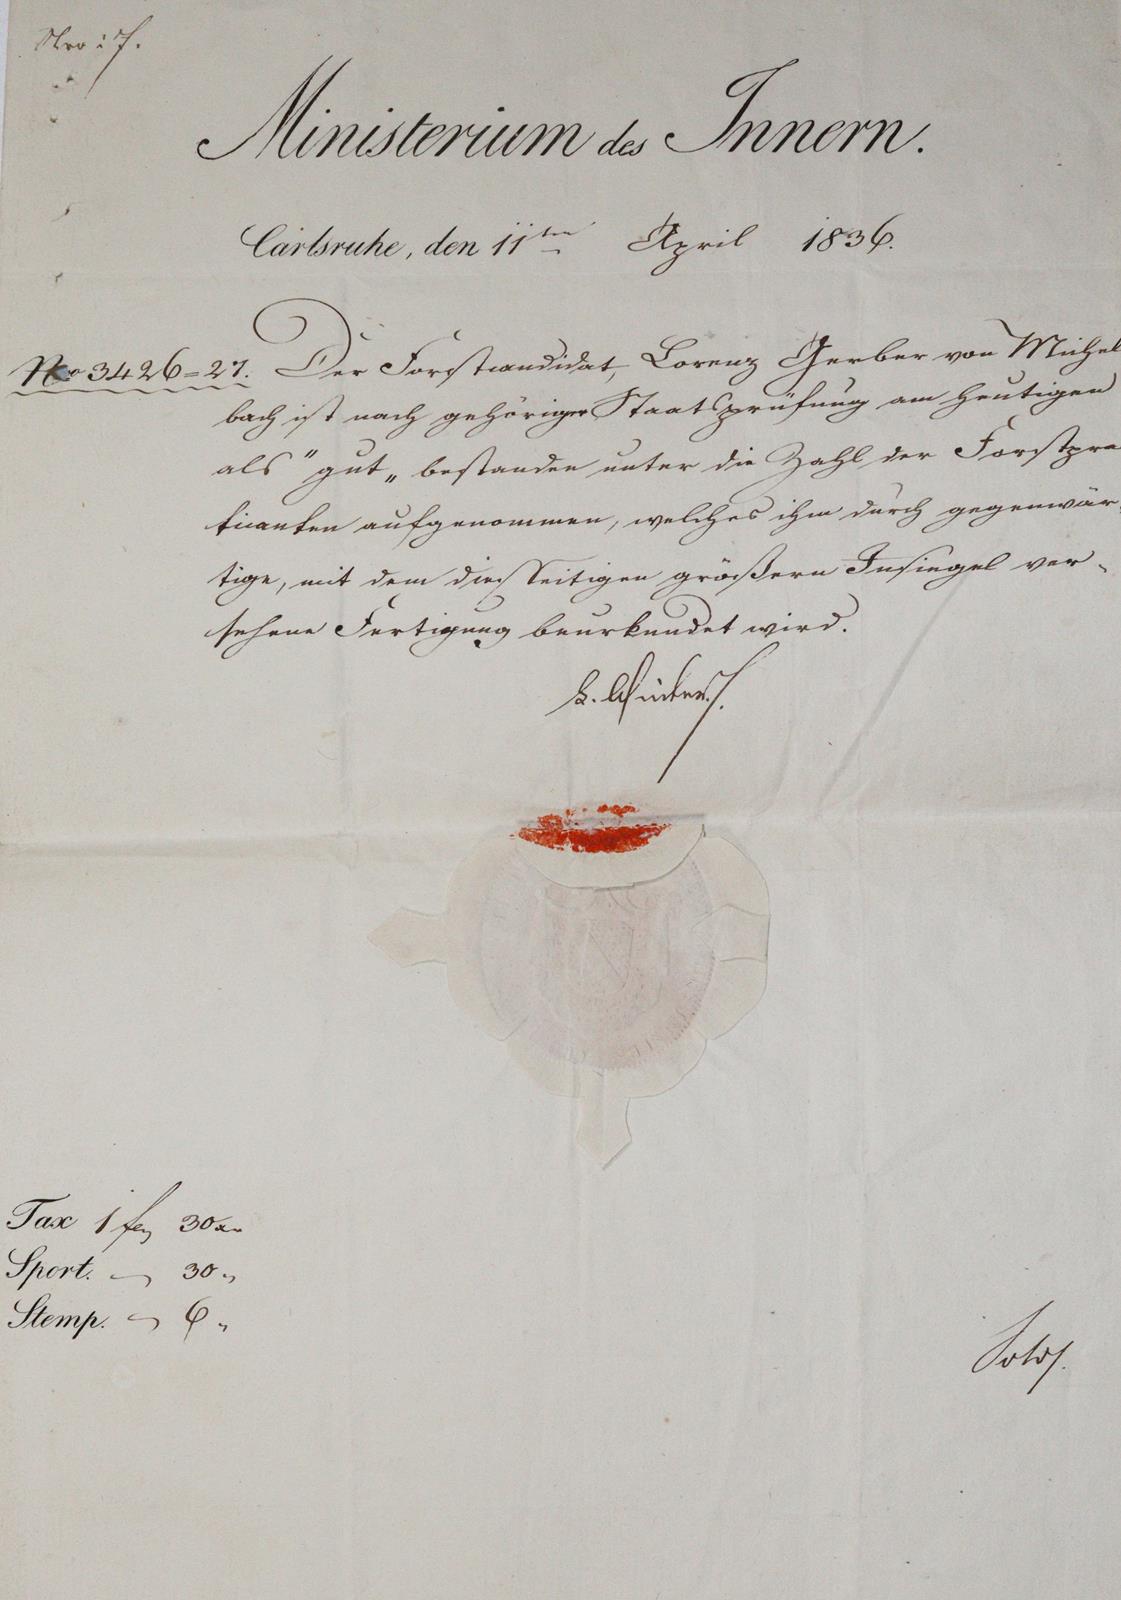 Nro: 7.
Ministerium des Innern.
Carlsruhe, den 11ten April 1836.
No 3426=27. Der Forstcandidat, Lorenz Gerber von Michel
bach ist nach gehöriger Staatsprüfung am heutigen
als "gut" bestanden unter die Zahl der Forstpra
ticanten aufgenommen, welches ihm durch gegenwär-
tige, mit dem diesseitigen größern Insiegel ver-
sehene Fertigung beurkundet wird.
L. Winter.
Tax 1 f 30 xr
Sport. — 30 "
Stemp. — 6 "